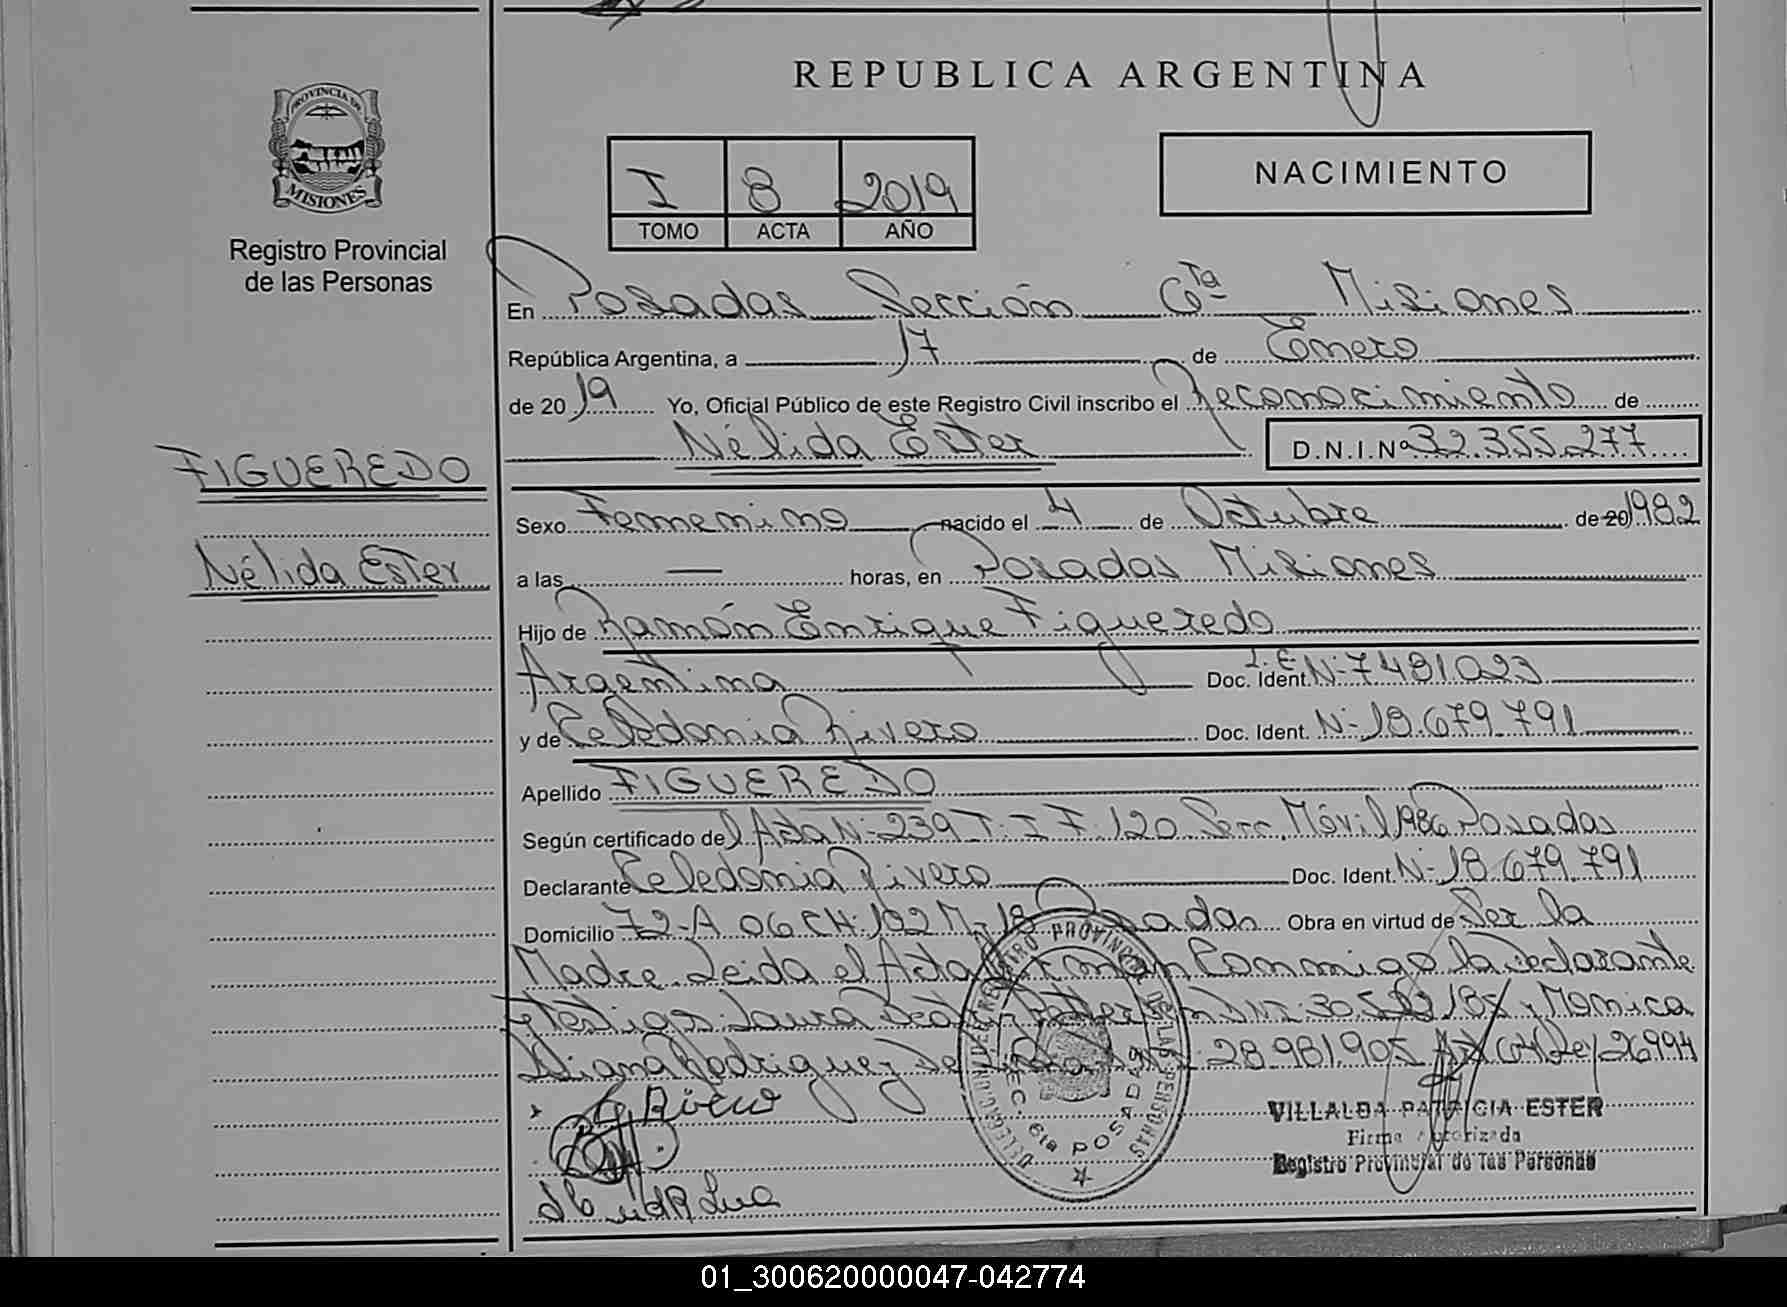 REPUBLICA ARGENTINA
PROVINCIA DE
MISIONES
Registro Provincial
de las Personas
I 8 2019
TOMO ACTA AÑO
NACIMIENTO
En Posadas Sección 6ta Misiones
República Argentina, a 17 de Enero
de 2019 Yo, Oficial Público de este Registro Civil inscribo el Reconocimiento de
Nélida Ester D.N.I.Nº 32.355.277
FIGUEREDO
Nélida Ester
Sexo Femenino nacido el 4 de Octubre de 20 1982
a las — horas, en Posadas Misiones
Hijo de Ramón Enrique Figueredo
Argentina Doc. Ident. L.E. Nº 7.481.023
y de Celedonia Rivero Doc. Ident. Nº 18.679.791
Apellido FIGUEREDO
Según certificado del Acta Nº 239 T. I F. 120 Secc. Móvil 1986 Posadas
Declarante Celedonia Rivero Doc. Ident. Nº 18.679.791
Domicilio 72-A 06 CH. 192 M-18 Posadas Obra en virtud de Ser la
Madre Leida el Acta Firman Conmigo la Declarante
y testigos: Laura DNI 30. y Monica
Diana Rodriguez De 28.981.905 Art 64 Ley 26994
DELEGACION DEL REGISTRO PROVINCIAL DE LAS PERSONAS
SEC. 6ta POSADAS
VILLALBA PATRICIA ESTER
Firma Autorizada
Registro Provincial de las Personas
01_300620000047-042774